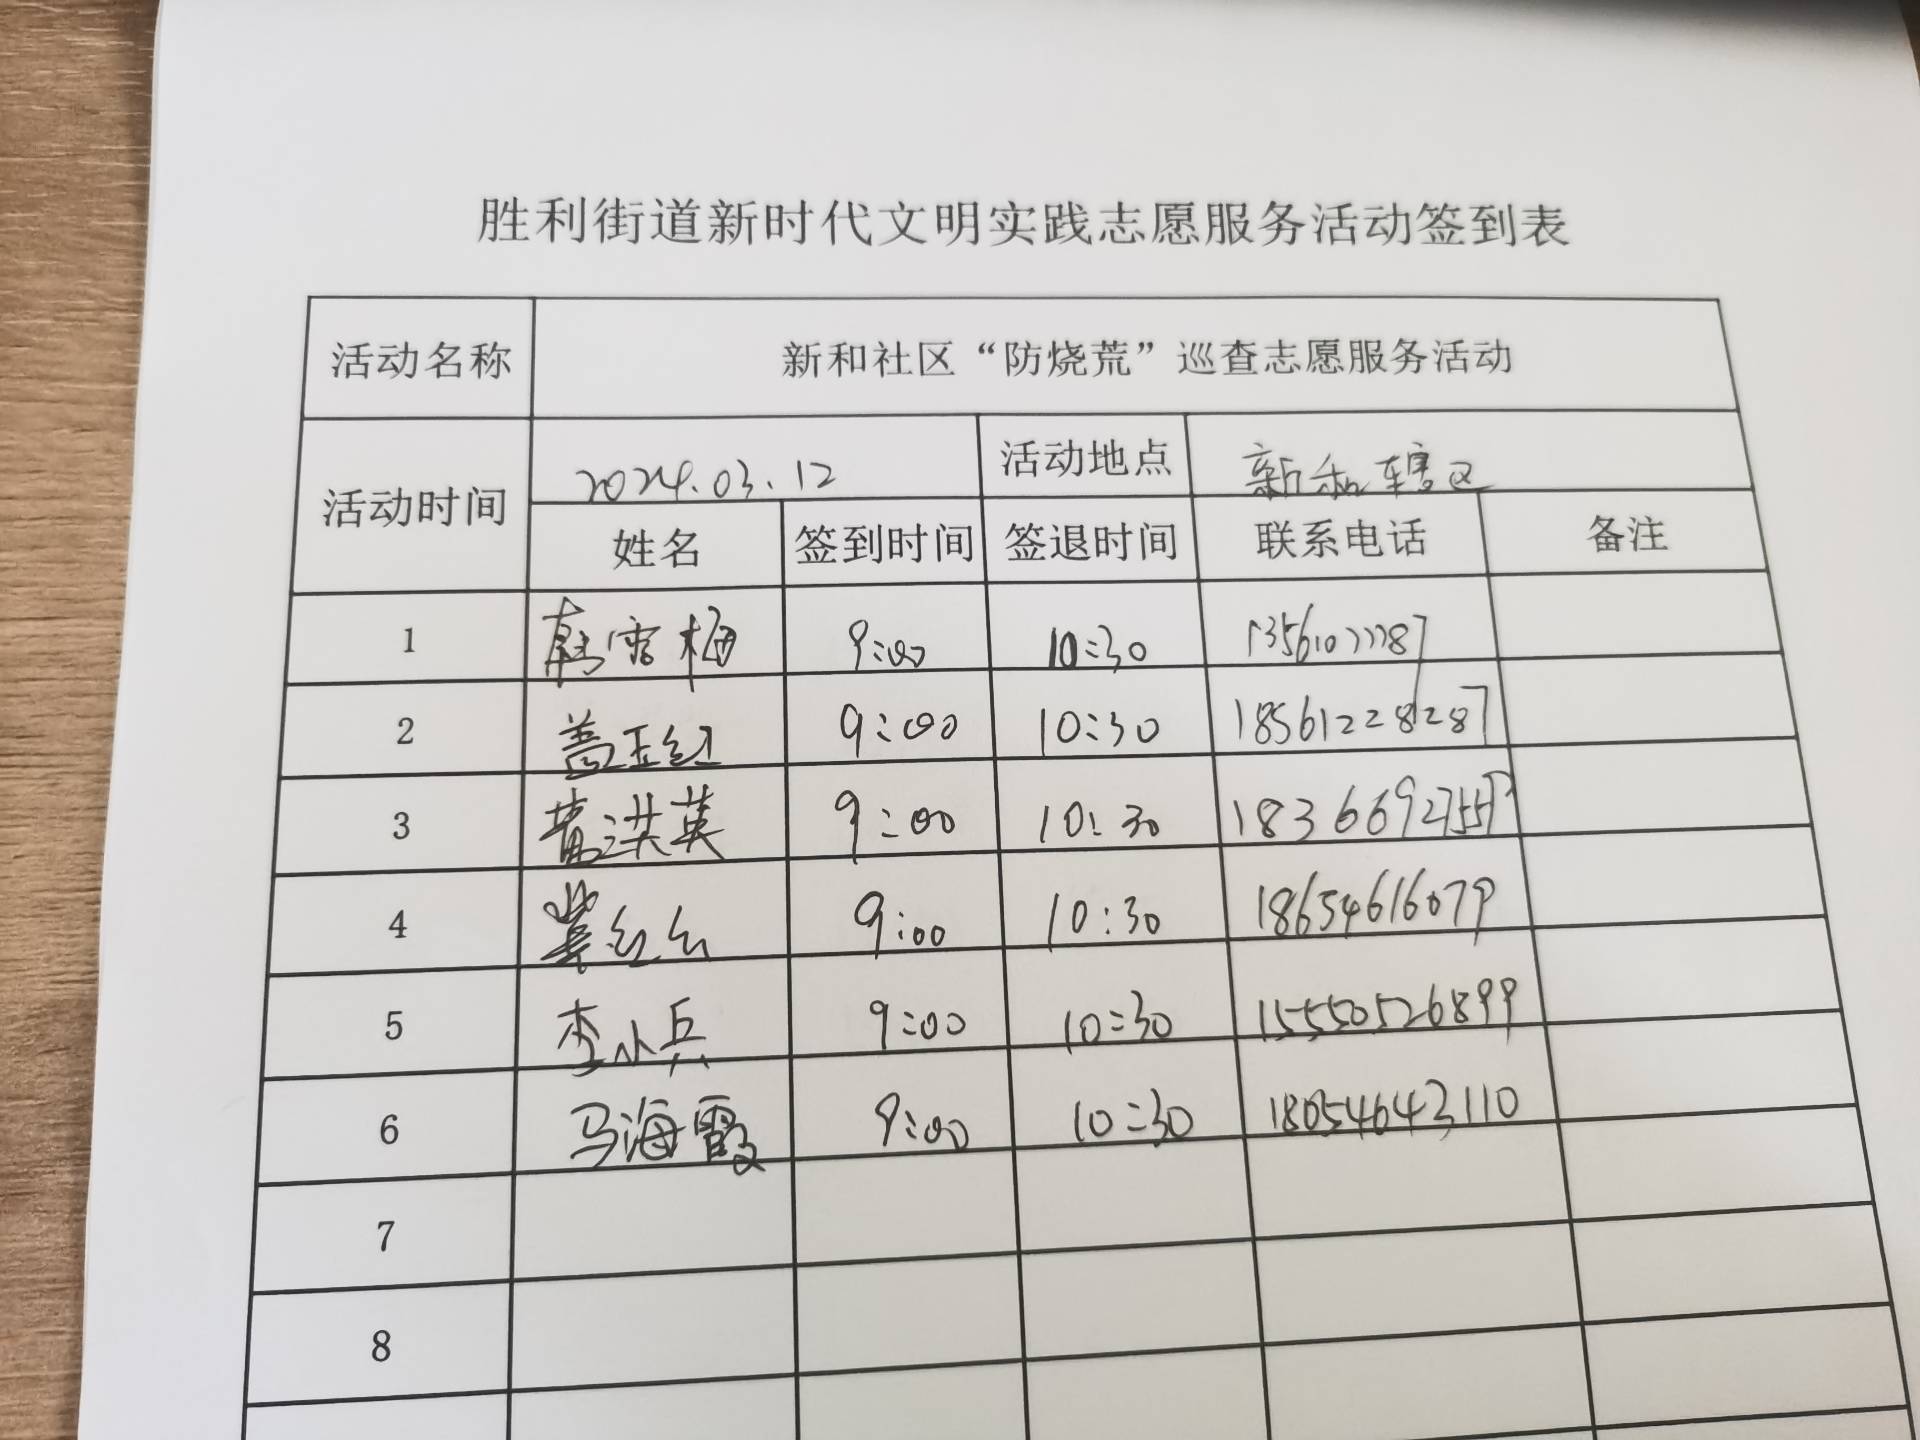 胜利街道新时代文明实践志愿服务活动签到表
活动名称 新和社区“防烧荒”巡查志愿服务活动
活动时间 2024.03.12 活动地点 新和辖区
姓名 签到时间 签退时间 联系电话 备注
1 9:00 10:30
2 盖玉红 9:00 10:30 18561228287
3 黄洪英 9:00 10:30
4 9:00 10:30 18654616079
5 李小兵 9:00 10:30 15550526899
6 马海霞 9:00 10:30 18054643110
7
8